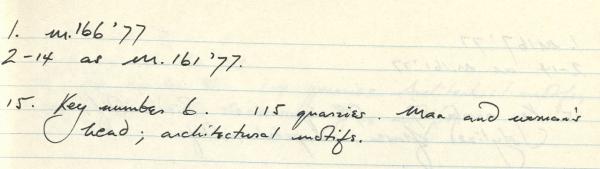 1. m.166 '77
2-14 as m.161 '77.
15. Key number 6. 115 quarries. Man and woman's
head; architectural motifs.